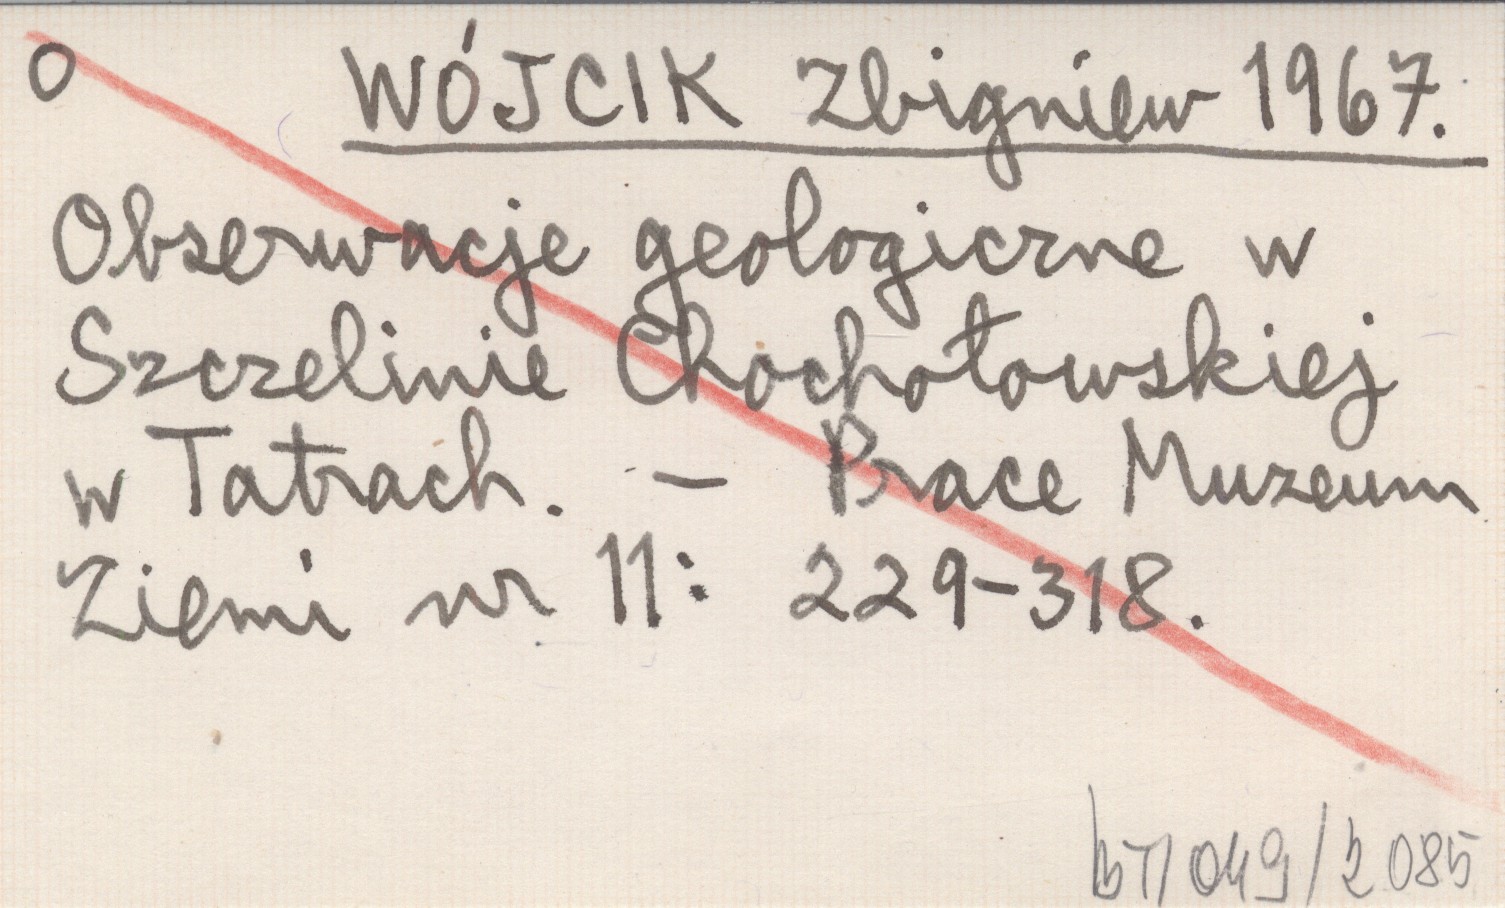 O WÓJCIK Zbigniew 1967.
Obserwacje geologiczne w
Szczelinie Chochołowskiej
w Tatrach. – Prace Muzeum
Ziemi nr 11: 229-318.
049/2085